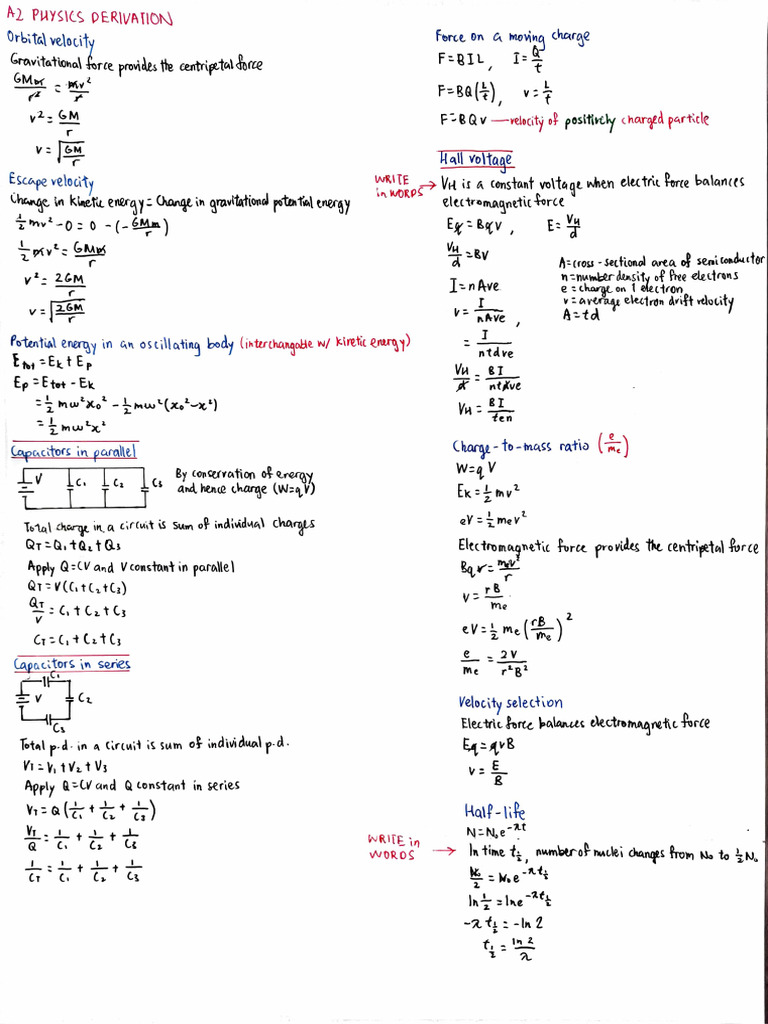 A2 PHYSICS DERIVATION
Orbital velocity
Gravitational force provides the centripetal force
GMm/r² = mv²/r
v² = GM/r
v = √(GM/r)
Escape velocity
Change in kinetic energy = Change in gravitational potential energy
1/2 mv² - 0 = 0 - (-GMm/r)
1/2 mv² = GMm/r
v² = 2GM/r
v = √(2GM/r)
Potential energy in an oscillating body (interchangable w/ kinetic energy)
Etot = Ek + Ep
Ep = Etot - Ek
= 1/2 mω²x₀² - 1/2 mω²(x₀² - x²)
= 1/2 mω²x²
Capacitors in parallel
V C₁ C₂ C₃
By conservation of energy
and hence charge (W=qV)
Total charge in a circuit is sum of individual charges
QT = Q₁ + Q₂ + Q₃
Apply Q=CV and V constant in parallel
QT = V(C₁ + C₂ + C₃)
QT/V = C₁ + C₂ + C₃
CT = C₁ + C₂ + C₃
Capacitors in series
C₁
V C₂
C₃
Total p.d. in a circuit is sum of individual p.d.
VT = V₁ + V₂ + V₃
Apply Q=CV and Q constant in series
VT = Q(1/C₁ + 1/C₂ + 1/C₃)
VT/Q = 1/C₁ + 1/C₂ + 1/C₃
1/CT = 1/C₁ + 1/C₂ + 1/C₃
Force on a moving charge
F = BIL, I = Q/t
F = BQ(L/t), v = L/t
F = BQv — velocity of positively charged particle
Hall voltage
WRITE in WORDS → VH is a constant voltage when electric force balances
electromagnetic force
Eq = Bqv, E = VH/d
VH/d = BV
I = nAve
v = I/nAve,
= I/ntdve
VH/d = BI/ntdve
VH = BI/ten
A = cross-sectional area of semiconductor
n = number density of free electrons
e = charge on 1 electron
v = average electron drift velocity
A = td
Charge-to-mass ratio (e/me)
W = qV
Ek = 1/2 mv²
eV = 1/2 mev²
Electromagnetic force provides the centripetal force
Bqv = mev²/r
v = rB/me
eV = 1/2 me(rB/me)²
e/me = 2V/r²B²
Velocity selection
Electric force balances electromagnetic force
Eq = qvB
v = E/B
Half-life
N = N₀e^-λt
WRITE in WORDS → In time t1/2, number of nuclei changes from N₀ to 1/2 N₀
N₀/2 = N₀e^-λt1/2
ln 1/2 = lne^-λt1/2
-λt1/2 = -ln 2
t1/2 = ln 2/λ